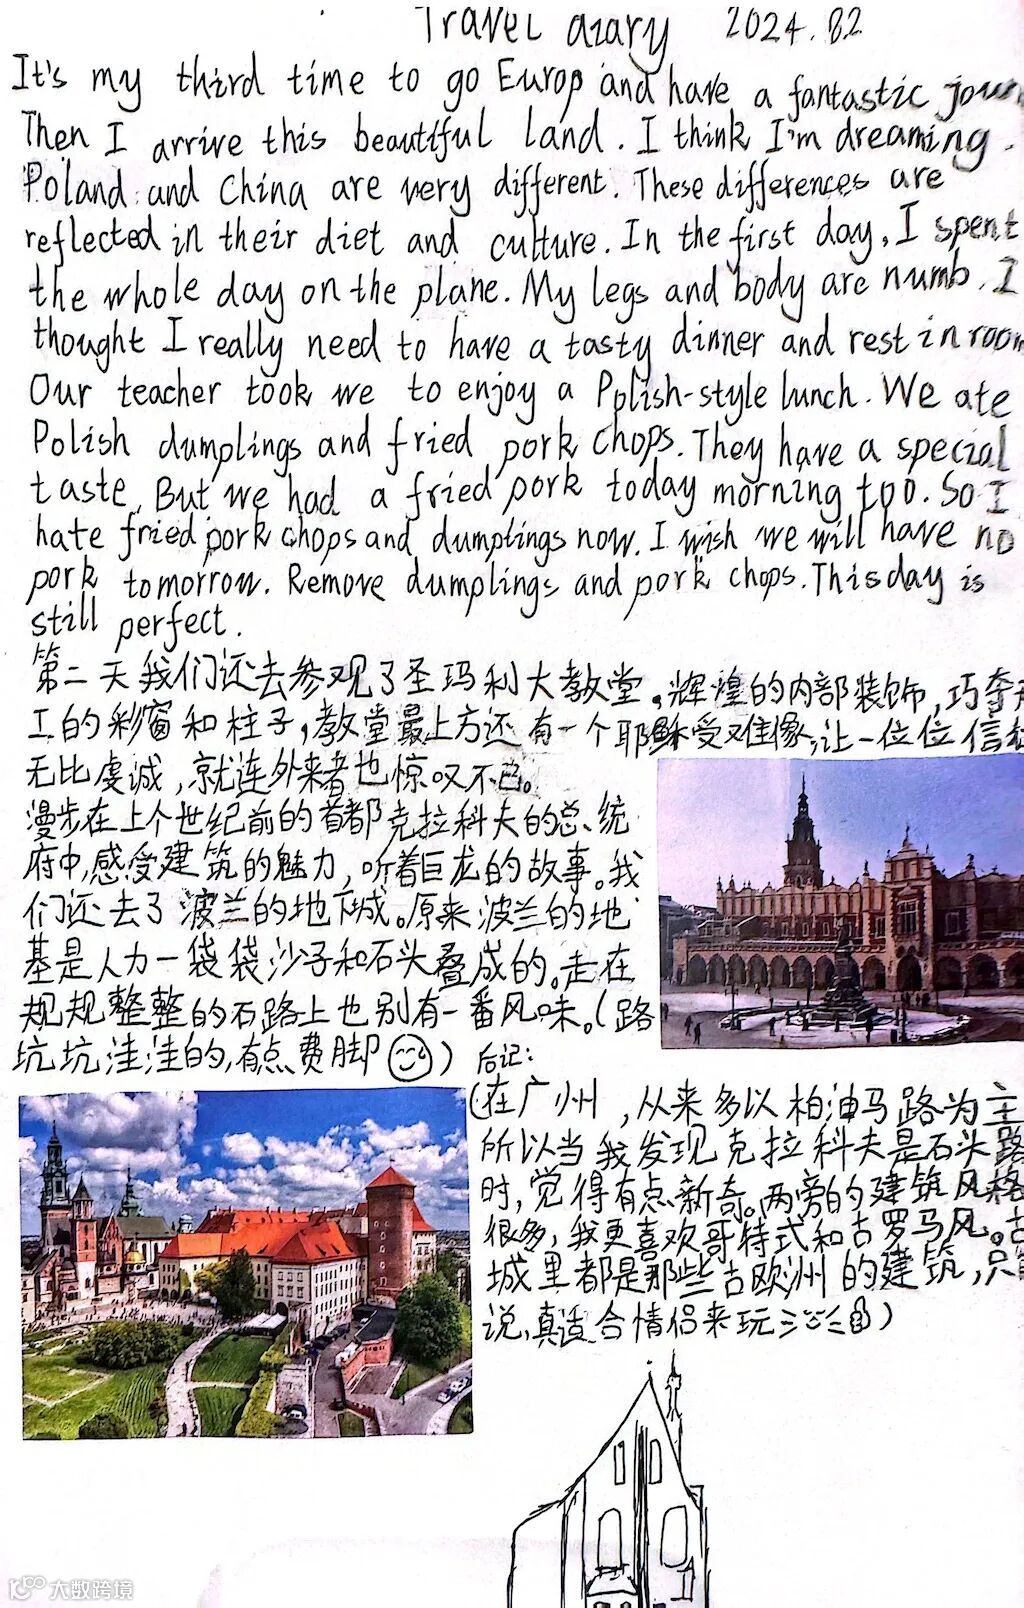 Travel diary 2024.8.2
It's my third time to go Europ and have a fantastic jour
Then I arrive this beautiful land. I think I'm dreaming.
Poland and China are very different. These differences are
reflected in their diet and culture. In the first day, I spent
the whole day on the plane. My legs and body are numb. I
thought I really need to have a tasty dinner and rest in room
Our teacher took we to enjoy a Polish-style lunch. We ate
Polish dumplings and fried pork chops. They have a special
taste. But we had a fried pork today morning too. So I
hate fried pork chops and dumplings now. I wish we will have no
pork tomorrow. Remove dumplings and pork chops. This day is
still perfect.
第二天我们还去参观了圣玛利大教堂。辉煌的内部装饰,巧夺天
工的彩窗和柱子,教堂最上方还有一个耶稣受难像,让一位位信徒
无比虔诚,就连外来者也惊叹不已。
漫步在上个世纪前的首都克拉科夫的总统
府中,感受建筑的魅力,听着巨龙的故事。我
们还去了波兰的地下城。原来波兰的地
基是人力一袋袋沙子和石头叠成的。走在
规规整整的石路上也别有一番风味。(路
坑坑洼洼的,有点费脚)
后记:
(在广州,从来多以柏油马路为主
所以当我发现克拉科夫是石头路
时,觉得有点新奇。两旁的建筑风格
很多,我更喜欢哥特式和古罗马风。古
城里都是那些古欧洲的建筑,只
说,真适合情侣来玩)
大数跨境